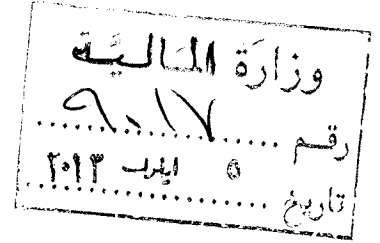 وزارَة المَاليَّة
رقم ٩٠١٧
تاريخ ٥ ايلول ٢٠١٣